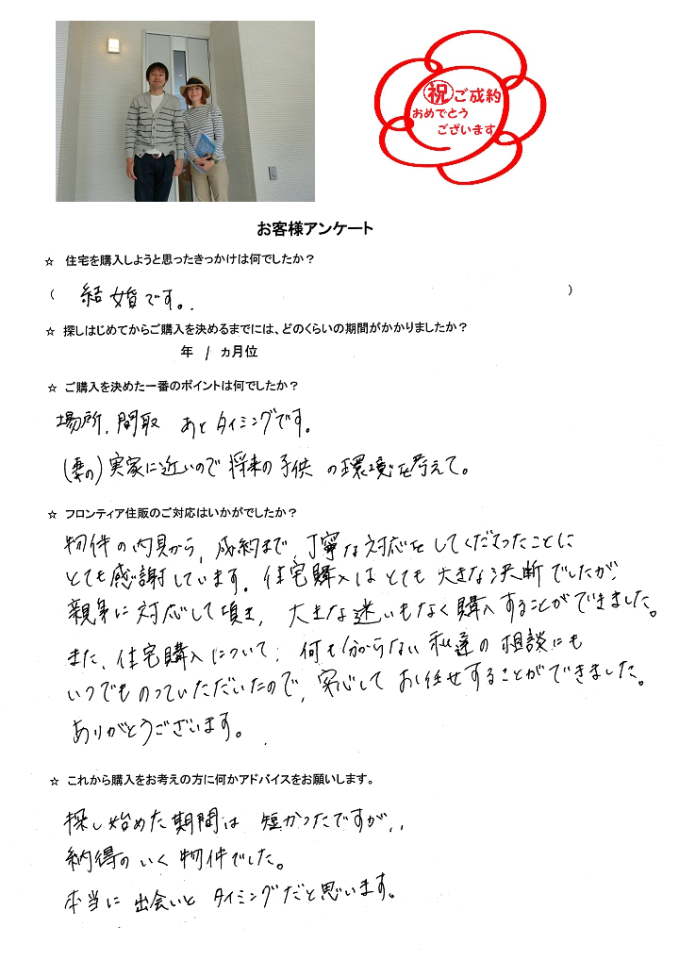 祝ご成約
おめでとう
ございます
お客様アンケート
☆ 住宅を購入しようと思ったきっかけは何でしたか?
( 結婚です。 )
☆ 探しはじめてからご購入を決めるまでには、どのくらいの期間がかかりましたか?
年 1 ヵ月位
☆ ご購入を決めた一番のポイントは何でしたか?
場所、間取 あとタイミングです。
(妻の)実家に近いので将来の子供の環境を考えて。
☆ フロンティア住販のご対応はいかがでしたか?
物件の内見から、成約まで、丁寧な対応をしてくださったことに
とても感謝しています。住宅購入はとても大きな決断でしたが、
親身に対応して頂き、大きな迷いもなく購入することができました。
また、住宅購入について、何も分からない私達の相談にも
いつでものっていただいたので、安心してお任せすることができました。
ありがとうございます。
☆ これから購入をお考えの方に何かアドバイスをお願いします。
探し始めた期間は 短かったですが、、
納得のいく物件でした。
本当に出会いとタイミングだと思います。